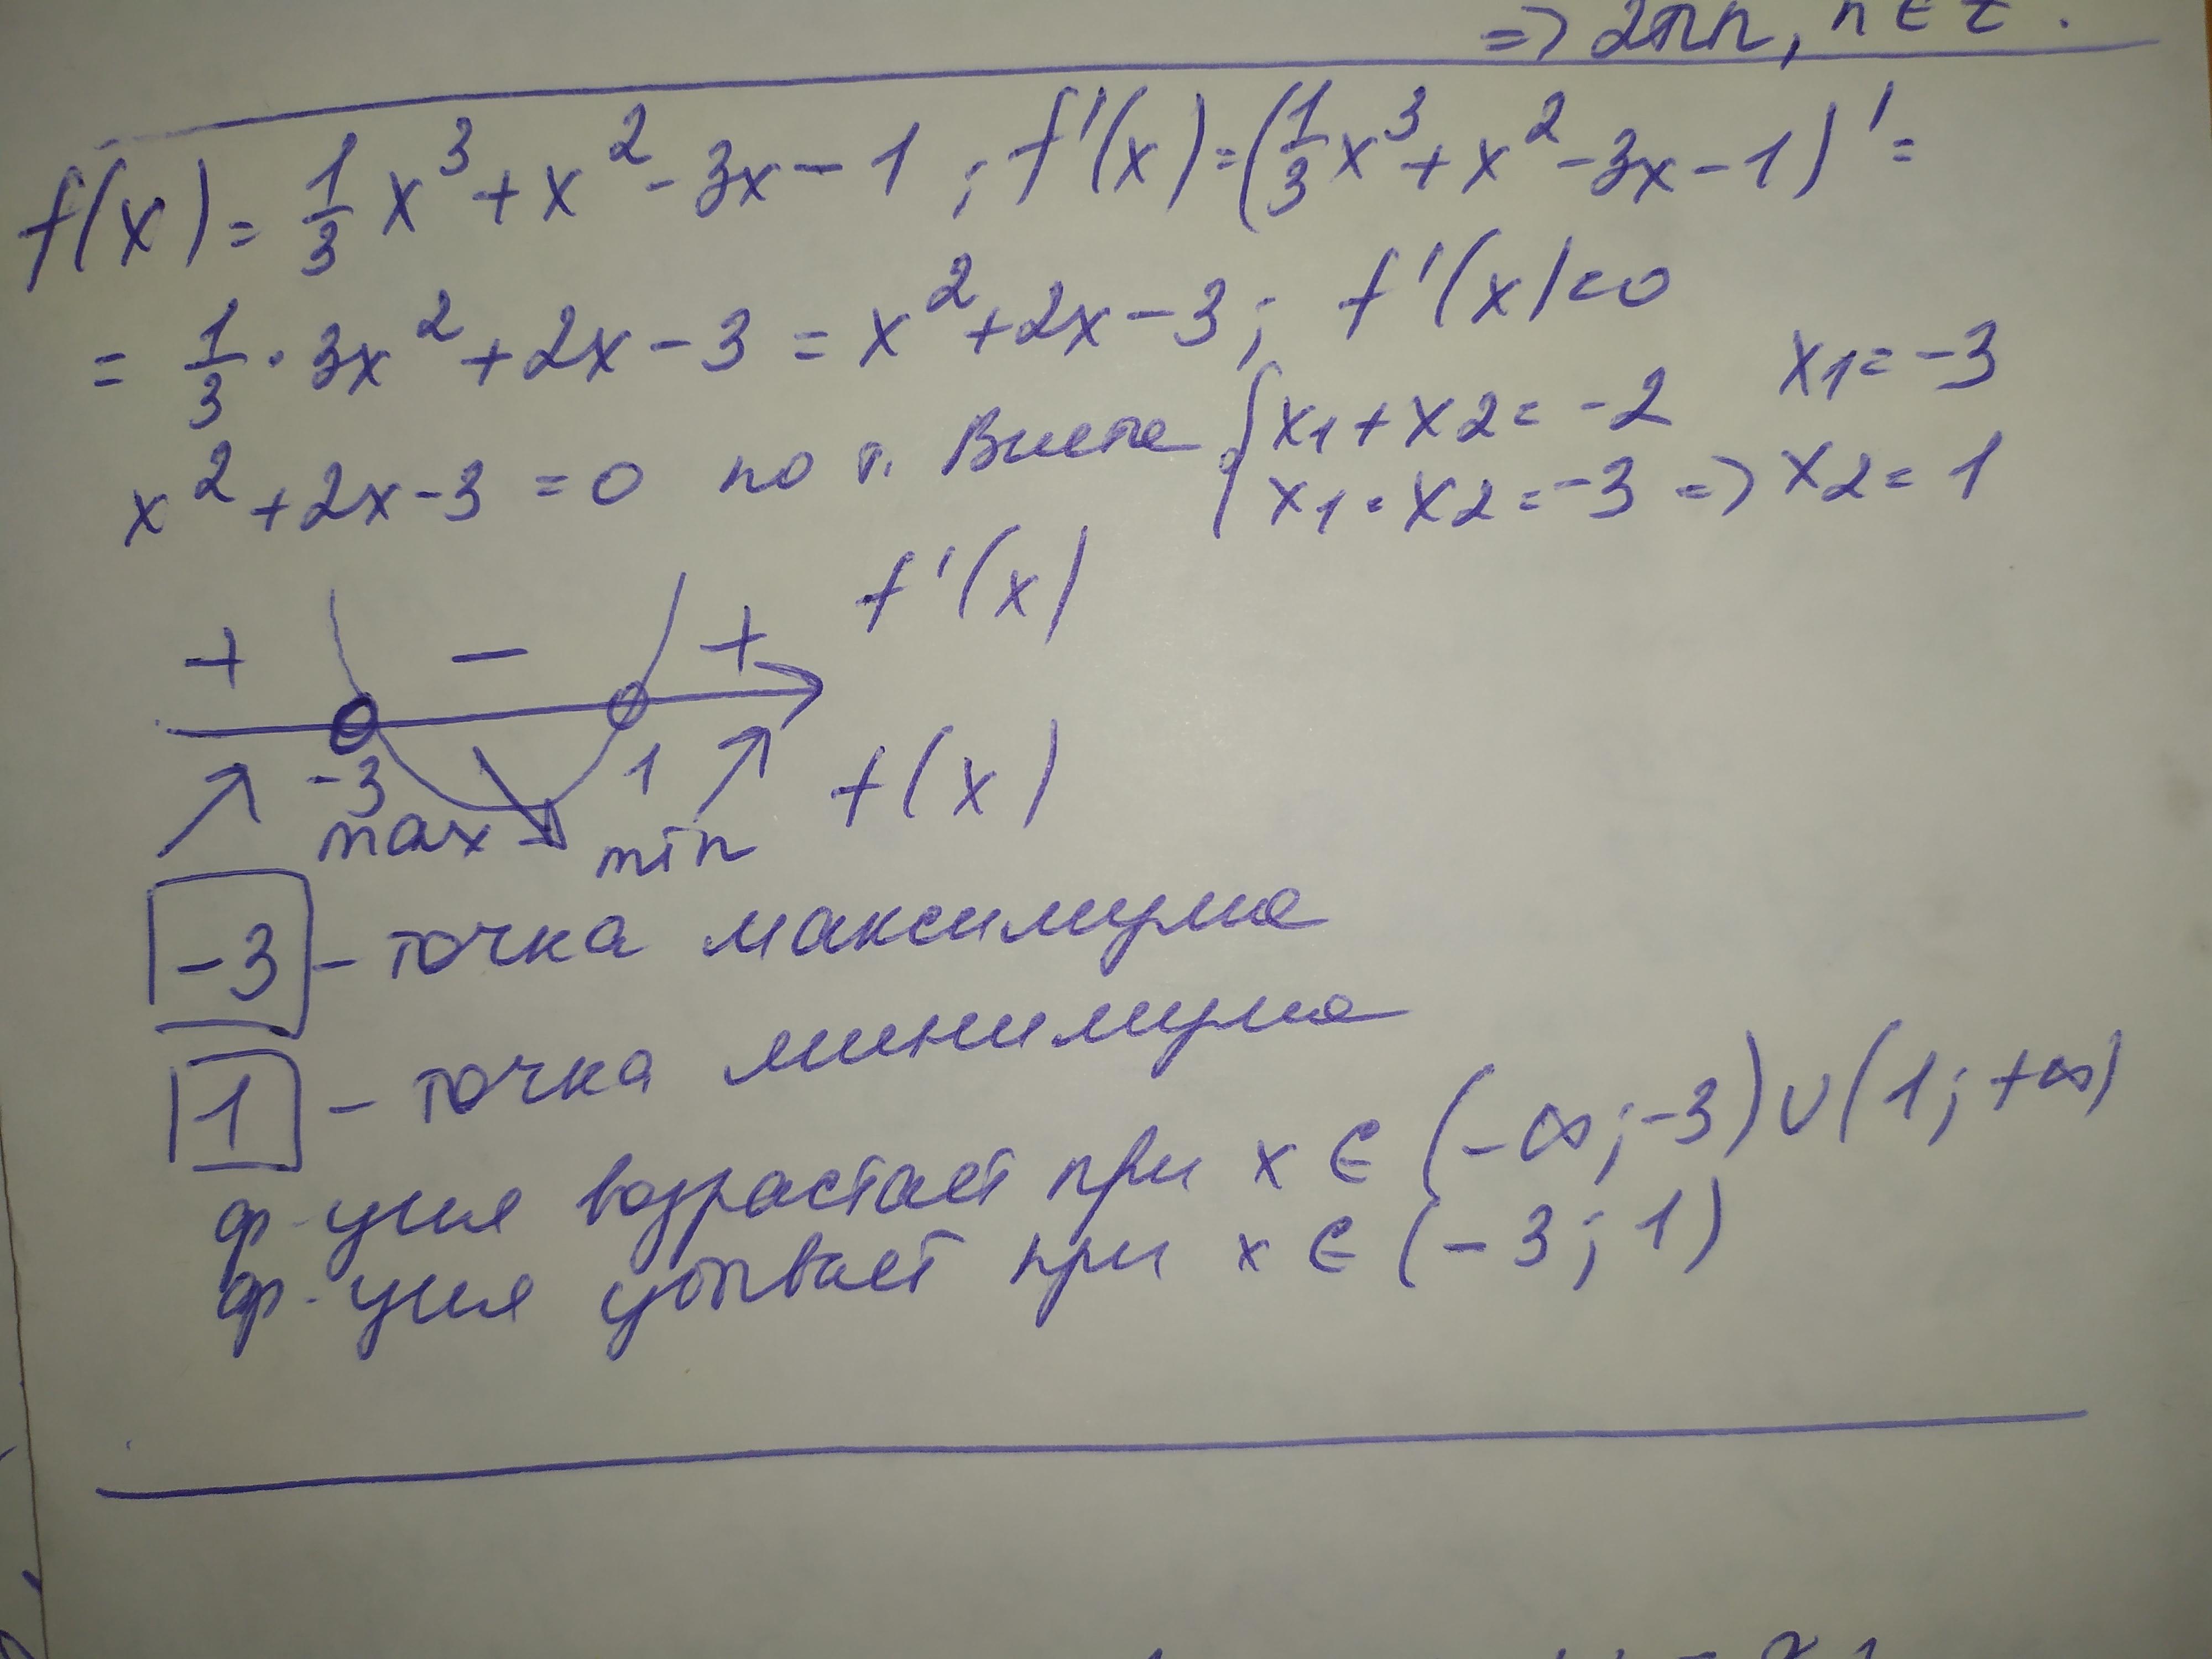 => 2πn, n ∈ Z.
f(x) = 1/3 x³ + x² - 3x - 1 ; f'(x) = (1/3 x³ + x² - 3x - 1)' =
= 1/3 · 3x² + 2x - 3 = x² + 2x - 3 ; f'(x) = 0
x² + 2x - 3 = 0 по т. Виета { x1 + x2 = -2 x1 = -3
x1 · x2 = -3 => x2 = 1
+ - + f'(x)
-3 1 f(x)
max min
-3 - точка максимума
1 - точка минимума
ф-ция возрастает при x ∈ (-∞; -3) ∪ (1; +∞)
ф-ция убывает при x ∈ (-3; 1)